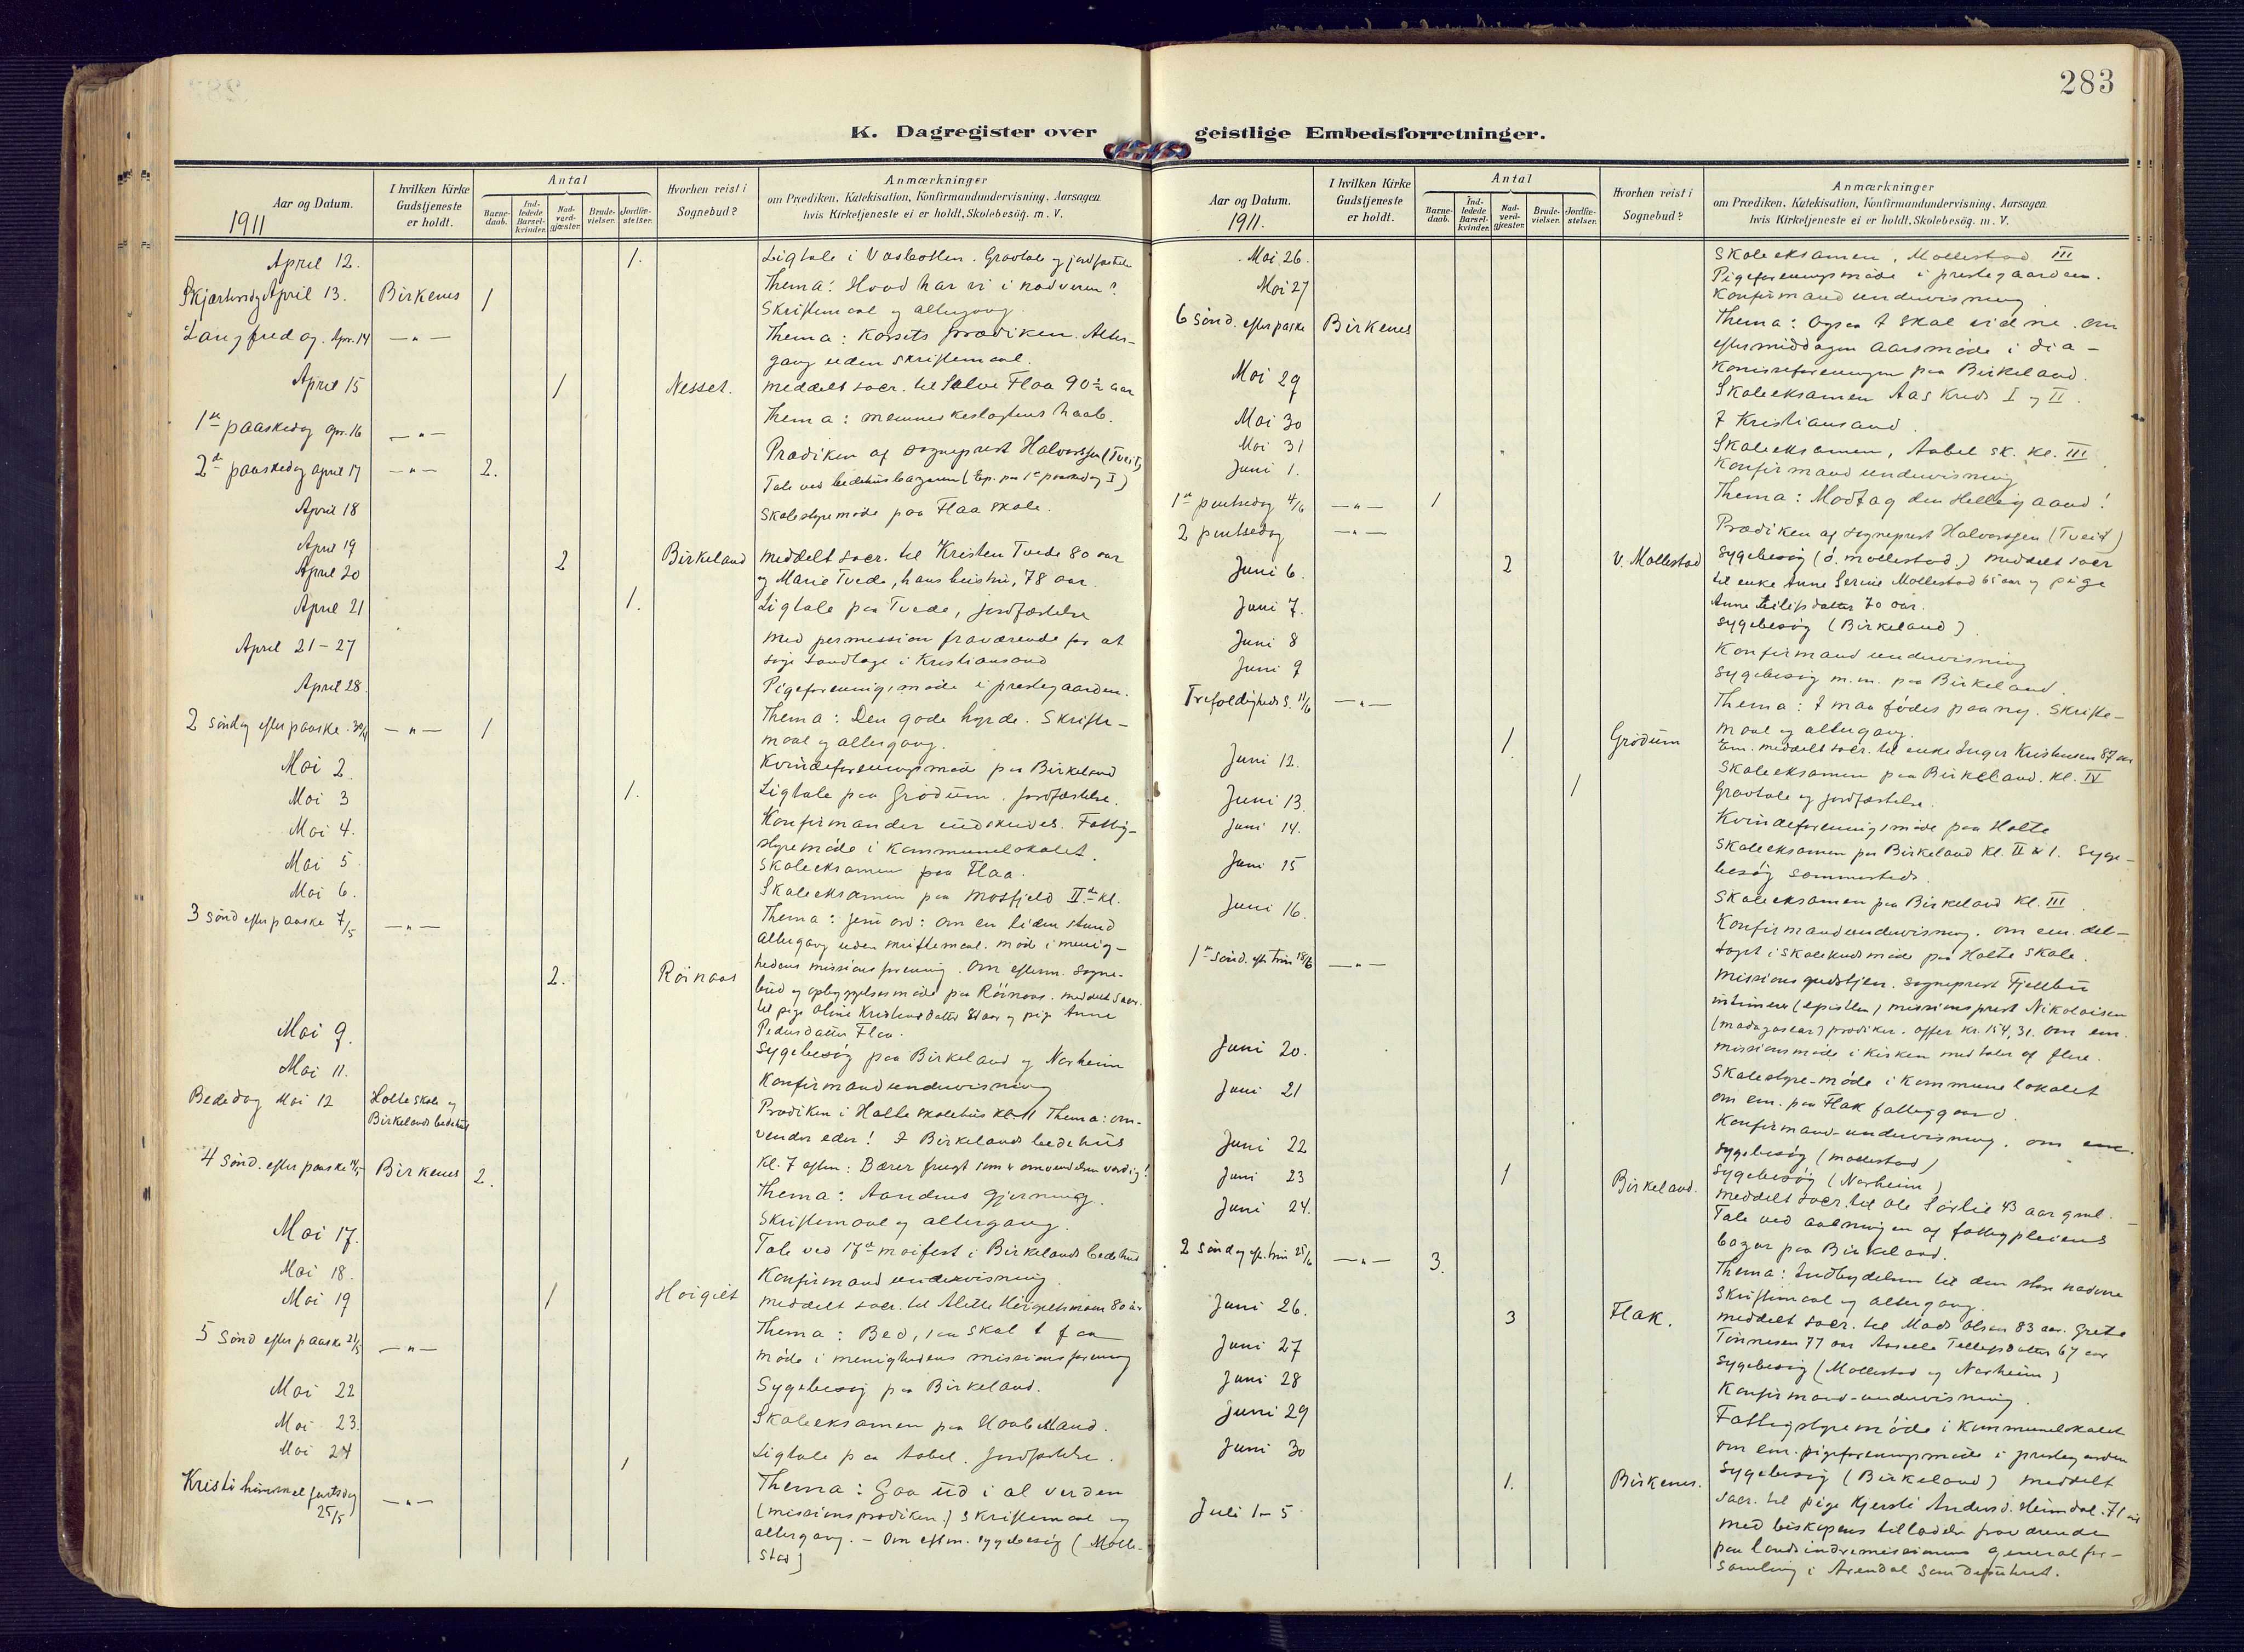 283
K. Dagregister over geistlige Embedsforretninger.
Aar og Datum.
1911
I hvilken Kirke Gudstjeneste er holdt.
Antal
Barnedaab.
Indledede Barselkvinder.
Nadverdgjæster.
Brudevielser.
Jordfæstelser.
Hvorhen reist i Sognebud?
Anmærkninger
om Prædiken, Katekisation, Konfirmandundervisning, Aarsagen
hvis Kirketjeneste ei er holdt, Skolebesög. m. V.
April 12. 1. Ligtale i Vasbotten. Gravtale og jordfæstelse
Skjærtorsdag April 13. Birkenes 1 Thema: Hvad har vi i nadveren?
Skriftemaal og altergang.
Langfredag. Apr. 14 —"— Thema: Korsets prædiken. Alter-
gang uden skriftemaal.
April 15 1 Nesset. meddelt sacr. til Salve Flaa 90½ aar
1ste paaskedag Apr. 16 —"— Thema: menneskeslægtens haab.
2den paaskedag april 17 —"— 2. Prædiken af sogneprest Halvorsen (Tveit)
Tale ved bedehusbazaren (Ep. paa 1ste paaskedag I)
April 18 Skolestyremøde paa Flaa skole.
April 19
April 20 2 Birkeland meddelt sacr. til Kristen Tvede 80 aar
og Marie Tvede, hans hustru, 78 aar.
April 21 1. Ligtale paa Tvede, jordfæstelse
April 21-27 med permission fraværende for at
søge landtage i Kristiansand
April 28. Pigeforenings møde i prestegaarden.
2 søndag efter paaske 30/4 —"— 1 Thema: Den gode hyrde. Skrifte-
maal og altergang.
Mai 2. Kvindeforeningsmøde paa Birkeland
Mai 3 1. Ligtale paa Grødum. jordfæstelse.
Mai 4. Konfirmander indskrives. Fattig-
styremøde i Kommunelokalet.
Mai 5 Skoleeksamen paa Flaa.
Mai 6. Skoleeksamen paa mosfjeld II. kl.
3 sønd efter paaske 7/5 —"— Thema: Jesu ord: om en liden stund
altergang uden skriftemaal. møde i menig-
hedens missionsforening. Om efterm. sogne-
2. Røinaas bud og opbyggelsesmøde paa Røinaas. meddelt sacr.
til pige Oline Kristensdatter aar og pige Anne
Pedersdatter Flaa.
Mai 9. Sygebesøg paa Birkeland og Norheim
Mai 11. Konfirmandundervisning
Bededag Mai 12 Holte skole og Birkelands bedehus Prædiken i Holte skolehus kl. 11 Thema: om-
vender eder! I Birkelands bedehus
kl. 7 aften: Bærer frugt som er omvendelsen værdig!
4 Sønd. efter paaske 14/5 Birkenes 2. Thema: Aandens gjerning.
Skriftemaal og altergang.
Mai 17. Tale ved 17de maifest i Birkelands bedehus
Mai 18. Konfirmandundervisning.
Mai 19 1 Høigilt meddelt sacr. til Alette Høigiltsmoen 80 aar
5 Sønd efter paaske 21/5 —"— Thema: Bed, saa skal I faa
møde i menighedens missionsforening
Mai 22 Sygebesøg paa Birkeland.
Mai 23. Skoleeksamen paa
Mai 24 1 Ligtale paa Aabel. Jordfæstelse.
Kristi himmelfartsdag 25/5 —"— Thema: Gaa ud i al verden
(missionsprædiken.) Skriftemaal og
altergang. — Om efterm. sygebesøg (Molle-
stad)
Aar og Datum.
1911.
I hvilken Kirke Gudstjeneste er holdt.
Antal
Barnedaab.
Indledede Barselkvinder.
Nadverdgjæster.
Brudevielser.
Jordfæstelser.
Hvorhen reist i Sognebud?
Anmærkninger
om Prædiken, Katekisation, Konfirmandundervisning, Aarsagen
hvis Kirketjeneste ei er holdt, Skolebesög. m. V.
Mai 26. Skoleeksamen, Mollestad III
Pigeforeningsmøde i prestegaarden.
Mai 27 Konfirmandundervisning
6 sønd. efter paaske Birkenes Thema: Ogsaa I skal vidne. Om
eftermiddagen aarsmøde i dia-
konisseforeningen paa Birkeland.
Mai 29 Skoleeksamen Aas Kreds I og II.
Mai 30 I Kristiansand.
Mai 31 Skoleeksamen, Aabel sk. kl. III
Juni 1. Konfirmandundervisning
1ste pintsedag 4/6 —"— 1 Thema: Modtag den Hellig aand!
2 pintsedag —"— Prædiken af sogneprest Halvorsen (Tveit)
Juni 6. 2 V. Mollestad Sygebesøg (ø. mollestad.) meddelt sacr
til enke Anne Serine Mollestad 65 aar og pige
Anne Eilifsdatter 70 aar.
Juni 7. Sygebesøg (Birkeland).
Juni 8 Konfirmandundervisning
Juni 9 Sygebesøg m.m. paa Birkeland.
Trefoldigheds S. 11/6 —"— Thema: I maa fødes paany. Skrifte-
maal og altergang.
1 Grødum Em. meddelt sacr. til enke Inger Kristensen 87 aar
Juni 12. Skoleeksamen paa Birkeland. Kl. IV
Juni 13. 1 Gravtale og jordfæstelse.
Juni 14. Kvindeforeningsmøde paa Holte
Juni 15 Skoleeksamen paa Birkeland Kl. II & I. Syge-
besøg sammesteds.
Juni 16. Skoleeksamen paa Birkeland Kl. III.
Konfirmandundervisning. Om em. del-
taget i skolekredsmøde paa Holte skole.
1ste sønd. eft. trin 18/6 —"— Missionsgudstjen. sogneprest Fjellbu
intimerer (epistlen) missionsprest Nikolaisen
(madagascar) prædiker. Offer kr. 154,31. Om em.
missionsmøde i kirken med taler af flere.
Juni 20. Skolestyre-møde i Kommunelokalet
om em. paa Flak fattiggaard.
Juni 21 Konfirmand-undervisning. Om em.
sygebesøg (mollestad)
Juni 22 Sygebesøg (Norheim)
Juni 23 1 Birkeland. meddelt sacr. til Ole Sørlie 43 aar gml.
Juni 24. Tale ved aabningen af fattigpleiens
bazar paa Birkeland.
2 søndag eft. trin 25/6 —"— 3. Thema: Indbydelsen til den store nadvere
Skriftemaal og altergang.
Juni 26. 3 Flak. meddelt sacr. til Mads Olsen 83 aar. Grete
Tønnesen 77 aar Tellefsdatter 67 aar
Juni 27 Sygebesøg (Mollestad og Norheim)
Juni 28 Konfirmand-undervisning.
Juni 29 Fattigstyremøde i Kommunelokalet
om em. pigeforeningsmøde i prestegaarden
Juni 30 1. Birkenes. Sygebesøg (Birkeland) meddelt
sacr. til pige Kjersti Andersd. Heimdal. 71 aar
Juli 1-5 med biskopens tilladelse fraværende
paa landsindremissionens generalfor-
samling i Arendal som deputeret.